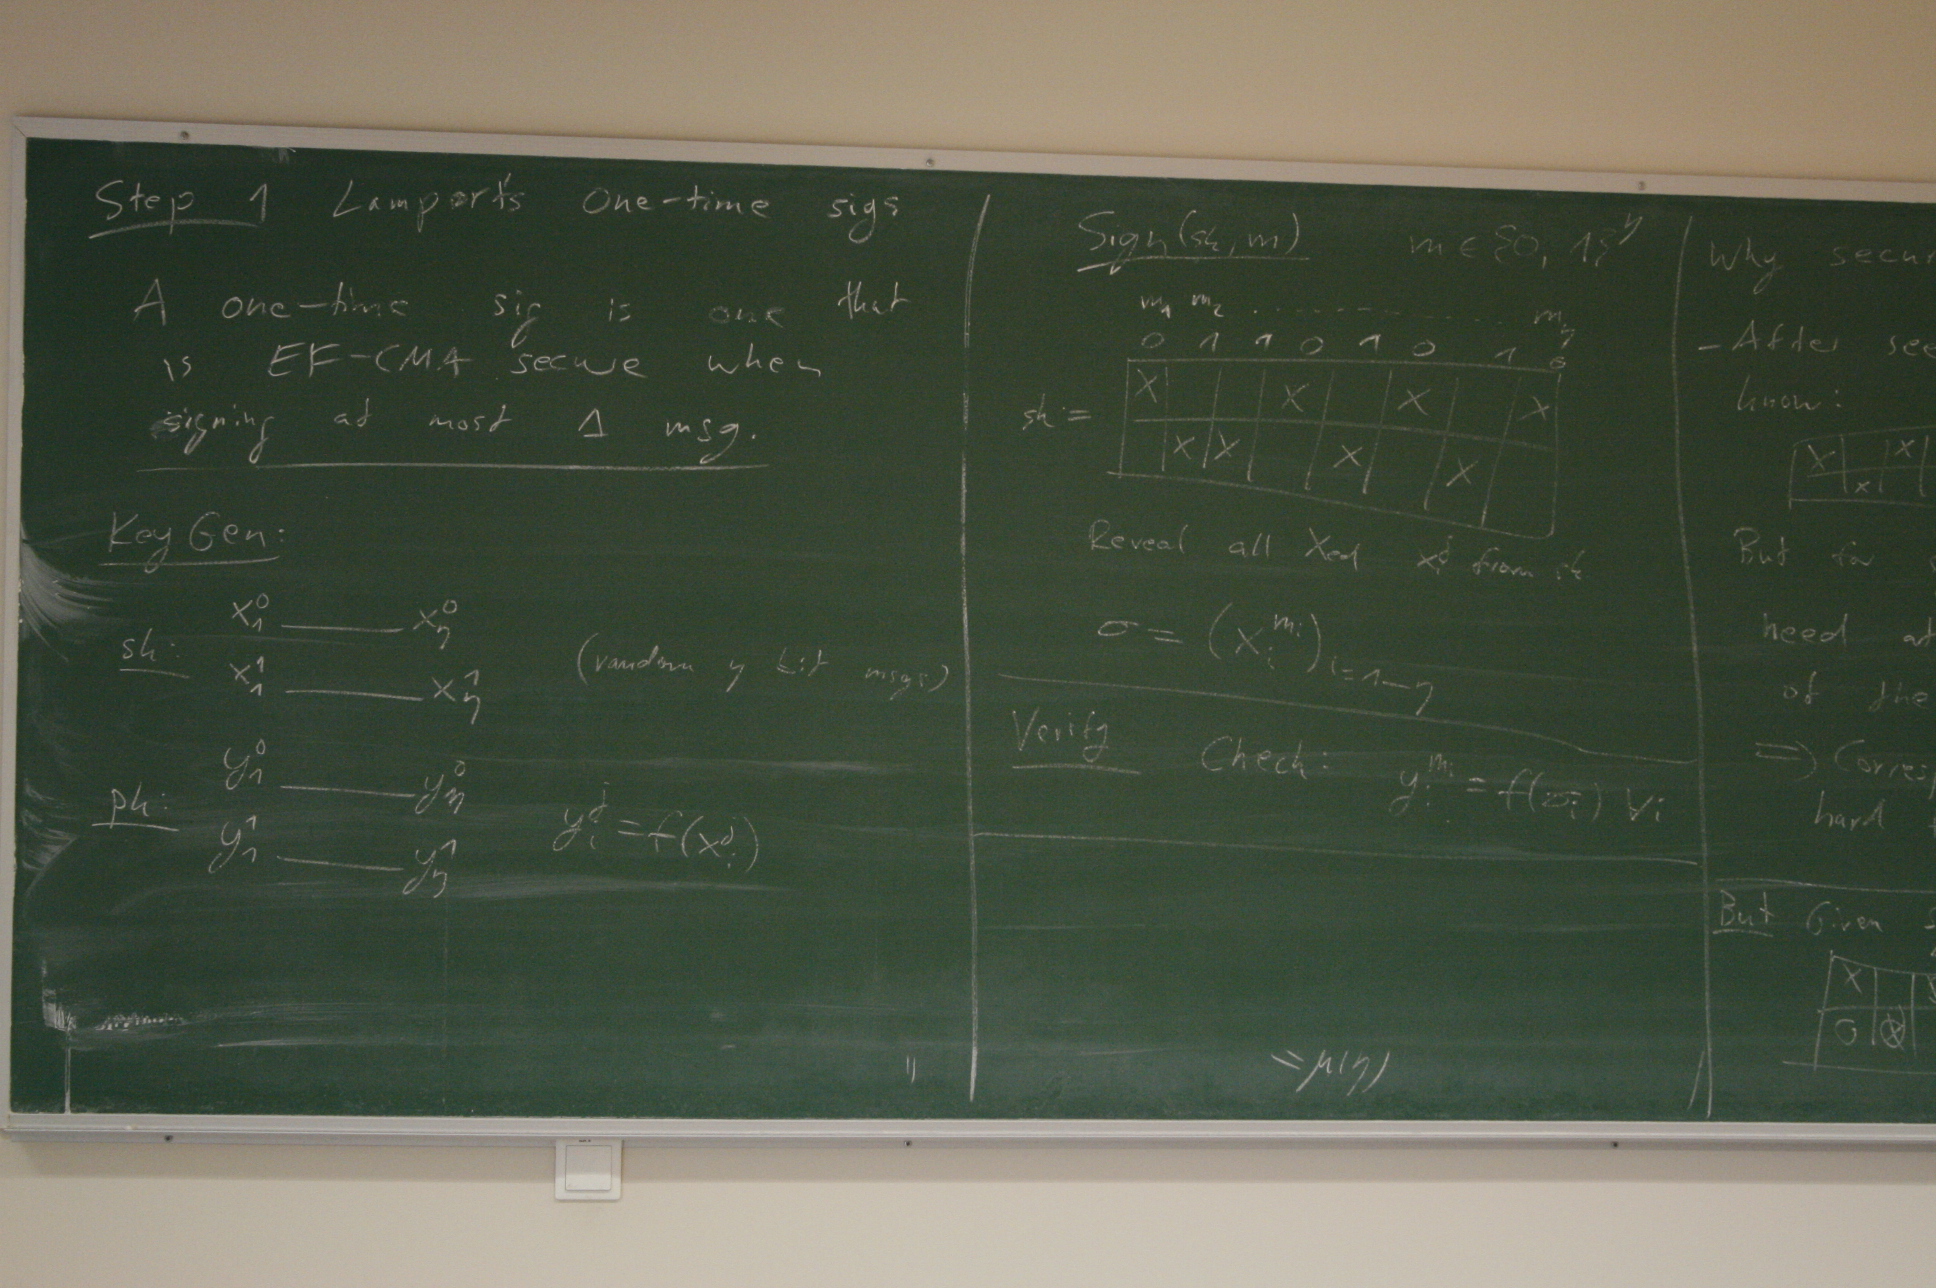 Step 1 Lamport's One-time sigs
A one-time sig is one that
is EF-CMA secure when
signing at most 1 msg.
KeyGen:
sk: x₁⁰ —— x_η⁰
x₁¹ —— x_η¹ (random η bit msgs)
pk: y₁⁰ —— y_η⁰
y₁¹ —— y_η¹ y_i^j = f(x_i^j)
Sign(sk, m) m ∈ {0, 1}^η
m₁ m₂ . . . . . . . . m_η
0 1 1 0 1 0 1 0
sk :=
X X X X
X X X X
Reveal all Xed x_i^j from sk
σ = (x_i^{m_i})_{i=1—η}
Verify Check: y_i^{m_i} = f(σ_i) ∀i
= μ(η)
Why secur
- After see
know:
X X
X
But for
need at
of the
=> Corresp
hard
But Given
X
0 ⊗